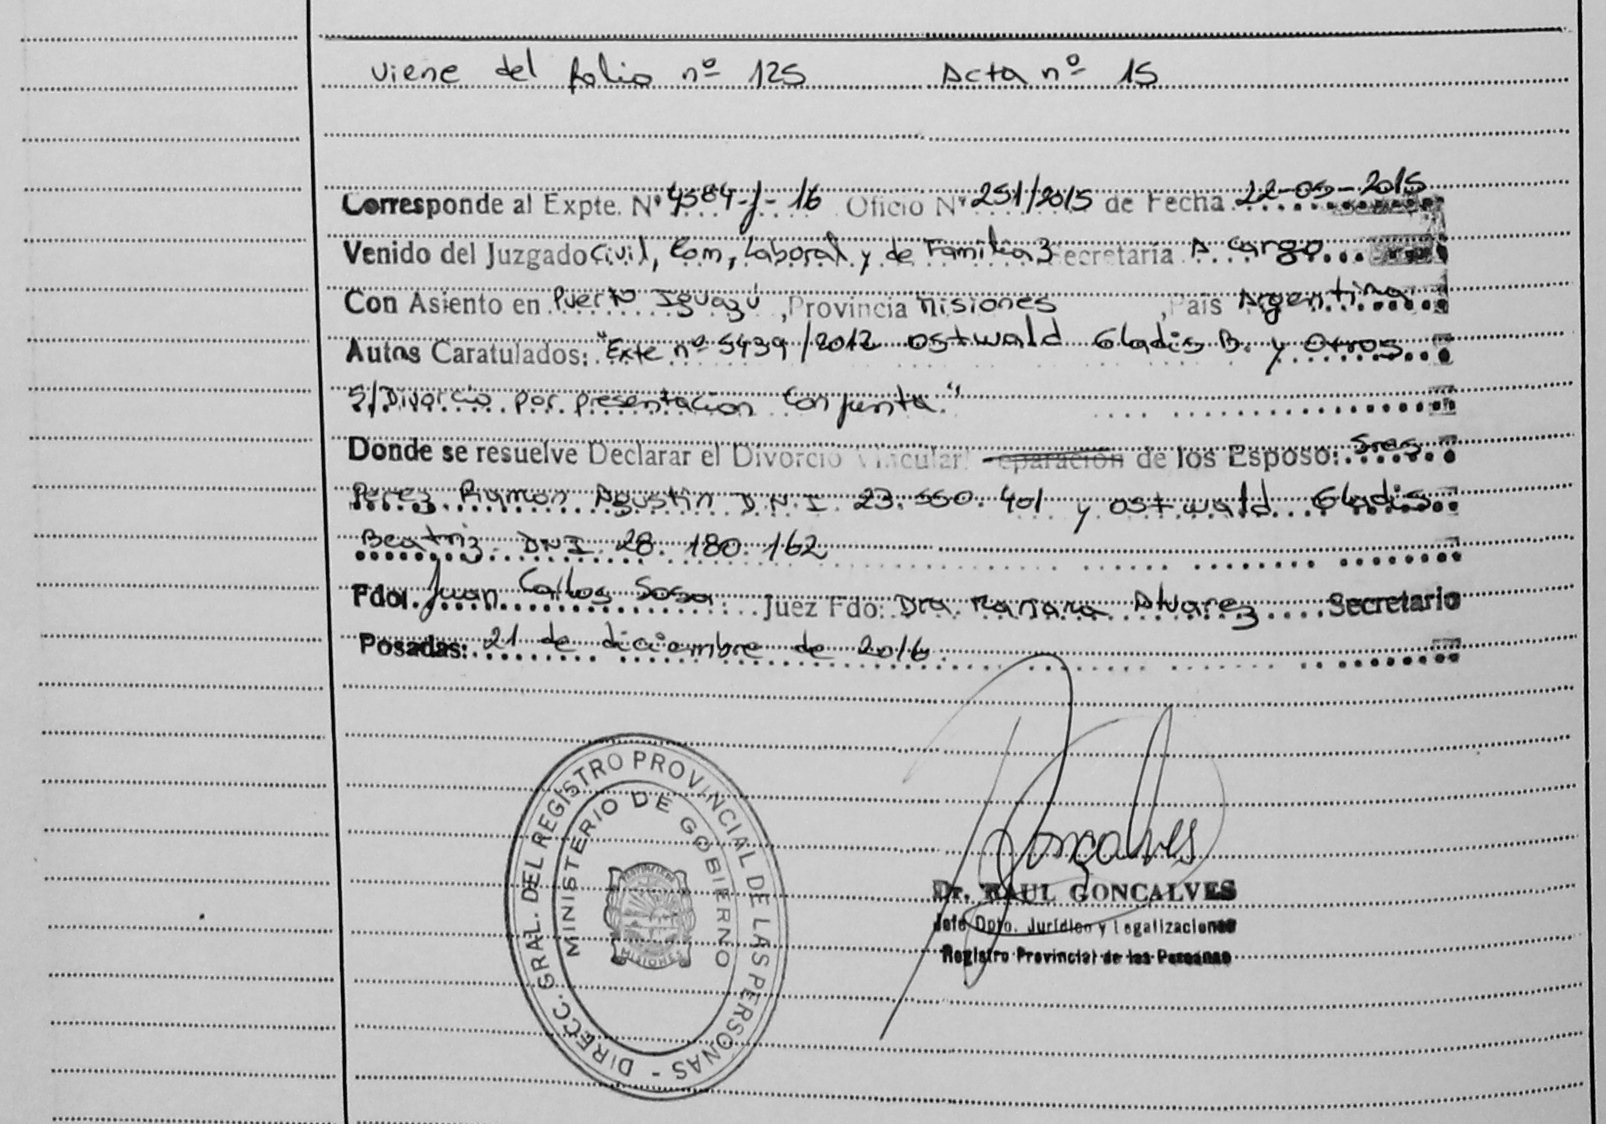 viene del folio nº 125 Acta nº 15
Corresponde al Expte. Nº 4584-J-16 Oficio Nº 251/2015 de Fecha 22-05-2015
Venido del Juzgado Civil, Com, Laboral y de Familia 3 Secretaria A cargo
Con Asiento en Puerto Iguazú, Provincia Misiones, Pais Argentina
Autos Caratulados: "Exte nº 5439/2012 Ostwald Gladis B. y Otros
S/Divorcio por presentacion Conjunta"
Donde se resuelve Declarar el Divorcio Vincular eparación de los Esposo: Sres
Perez Ramon Agustin D.N.I 23.550.401 y Ostwald Gladis
Beatriz DNI 28.180.162
Fdo. Juan Carlos Sosa Juez Fdo: Dra. Mariana Alvarez Secretario
Posadas: 21 de diciembre de 2016.
DIRECC. GRAL. DEL REGISTRO PROVINCIAL DE LAS PERSONAS -
MINISTERIO DE GOBIERNO
MISIONES
Gonçalves
Dr. RAUL GONCALVES
Jefe Dpto. Jurídico y Legalizaciones
Registro Provincial de las Personas